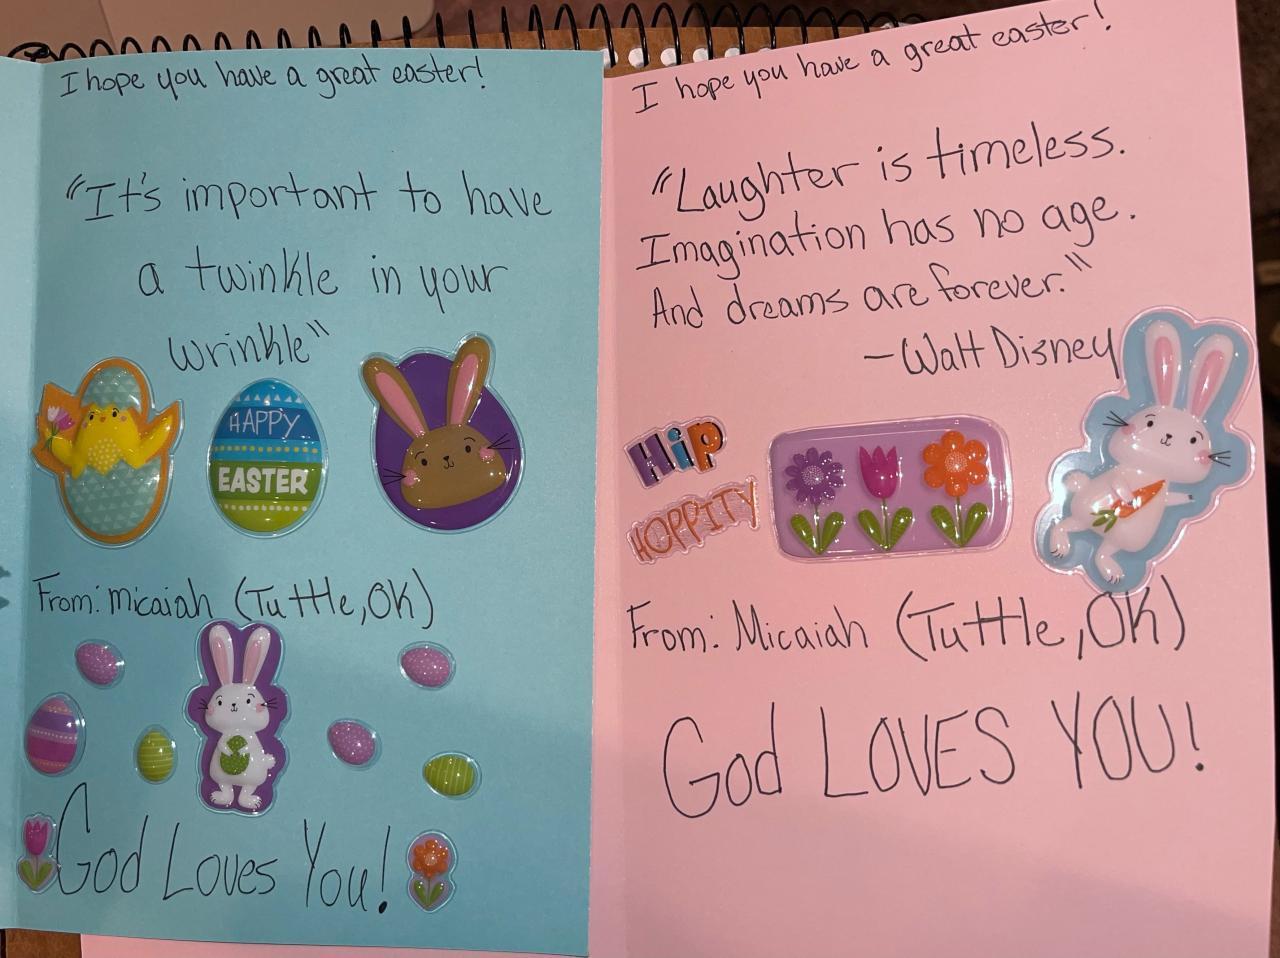 I hope you have a great easter!
"It's important to have
a twinkle in your
wrinkle"
HAPPY
EASTER
From: Micaiah (Tuttle, OK)
God Loves You!
I hope you have a great easter!
"Laughter is timeless.
Imagination has no age.
And dreams are forever."
- Walt Disney
Hip
HOPPITY
From: Micaiah (Tuttle, OK)
God LOVES YOU!